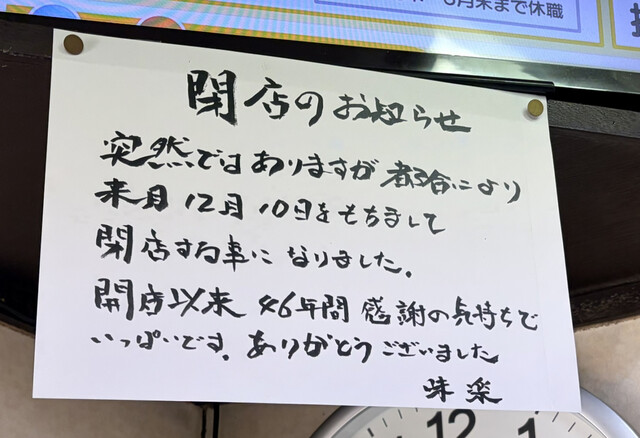 月末まで休職
閉店のお知らせ
突然ではありますが都合により
来月12月10日をもちまして
閉店する事になりました。
開店以来46年間感謝の気持ちで
いっぱいです。ありがとうございました
味楽
12
1